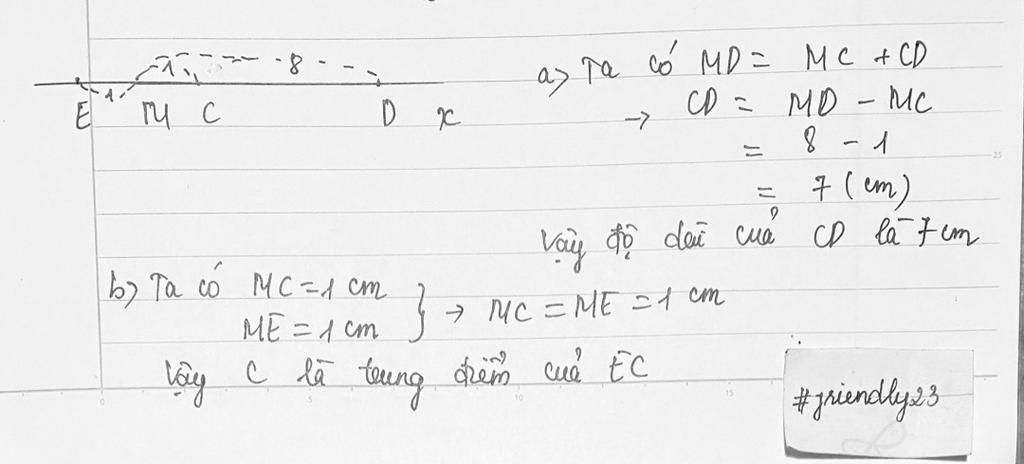 1 8
E 1 M C D x
a) Ta có MD = MC + CD
→ CD = MD - MC
= 8 - 1
= 7 (cm)
Vậy độ dài của CD là 7 cm
b) Ta có MC = 1 cm
ME = 1 cm } → MC = ME = 1 cm
Vậy C là trung điểm của EC
#friendly23